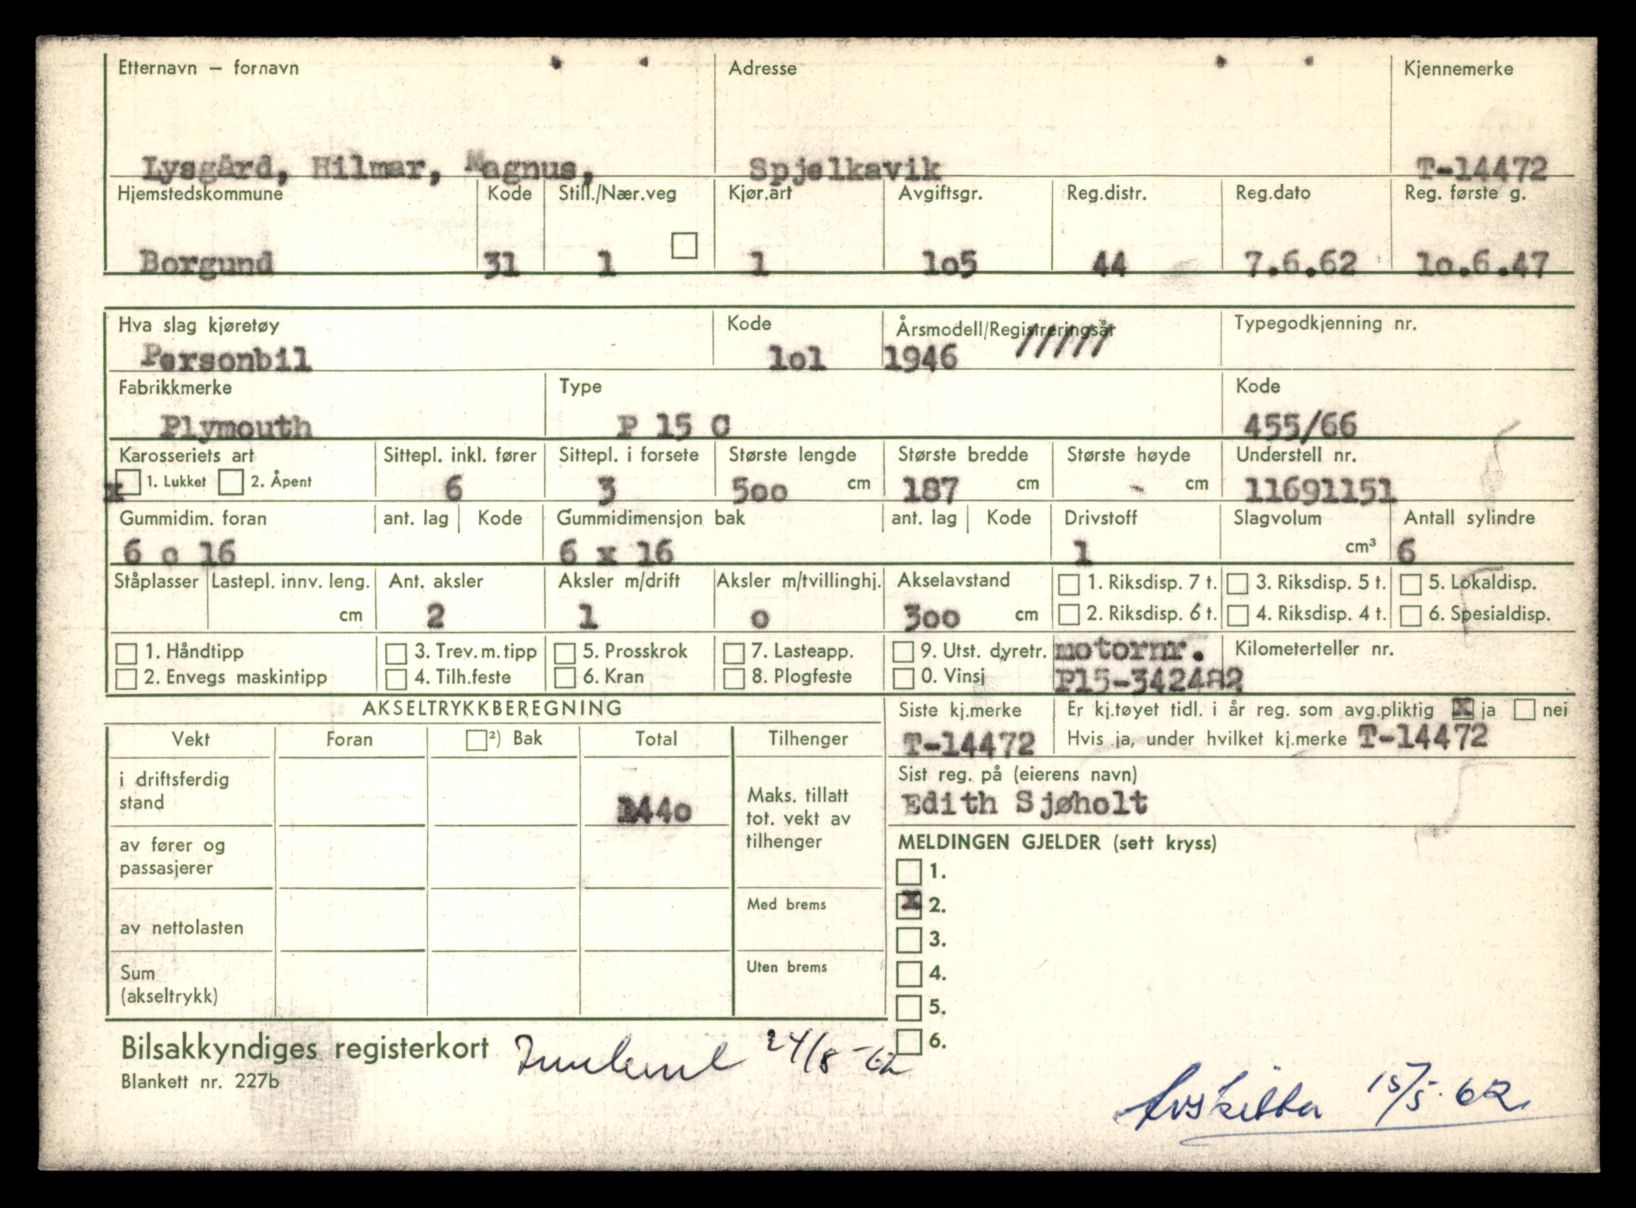 Etternavn — fornavn Adresse Kjennemerke
Lysgård, Hilmar, Magnus, Spjelkavik T-14472
Hjemstedskommune Kode Still./Nær.veg Kjør.art Avgiftsgr. Reg.distr. Reg.dato Reg. første g.
Borgund 31 1 1 lo5 44 7.6.62 lo.6.47
Hva slag kjøretøy Kode Årsmodell/Registreringsår Typegodkjenning nr.
Personbil lol 1946 /////
Fabrikkmerke Type Kode
Plymouth P 15 C 455/66
Karosseriets art Sittepl. inkl. fører Sittepl. i forsete Største lengde Største bredde Største høyde Understell nr.
x 1. Lukket 2. Åpent 6 3 5oo cm 187 cm - cm 11691151
Gummidim. foran ant. lag Kode Gummidimensjon bak ant. lag Kode Drivstoff Slagvolum Antall sylindre
6 o 16 6 x 16 1 cm³ 6
Ståplasser Lastepl. innv. leng. Ant. aksler Aksler m/drift Aksler m/tvillinghj. Akselavstand 1. Riksdisp. 7 t. 3. Riksdisp. 5 t. 5. Lokaldisp.
cm 2 1 o 3oo cm 2. Riksdisp. 6 t. 4. Riksdisp. 4 t. 6. Spesialdisp.
1. Håndtipp 3. Trev. m. tipp 5. Prosskrok 7. Lasteapp. 9. Utst. dyretr. motornr. Kilometerteller nr.
2. Envegs maskintipp 4. Tilh.feste 6. Kran 8. Plogfeste 0. Vinsj P15-342482
AKSELTRYKKBEREGNING Siste kj.merke Er kj.tøyet tidl. i år reg. som avg.pliktig x ja nei
Vekt Foran ²) Bak Total Tilhenger T-14472 Hvis ja, under hvilket kj.merke T-14472
i driftsferdig stand 1440 Maks. tillatt tot. vekt av tilhenger Sist reg. på (eierens navn)
Edith Sjøholt
av fører og passasjerer MELDINGEN GJELDER (sett kryss)
1.
av nettolasten Med brems x 2.
3.
Sum (akseltrykk) Uten brems 4.
5.
6.
Bilsakkyndiges registerkort 24/8-62
Blankett nr. 227b
Avskilta 15/5.62.